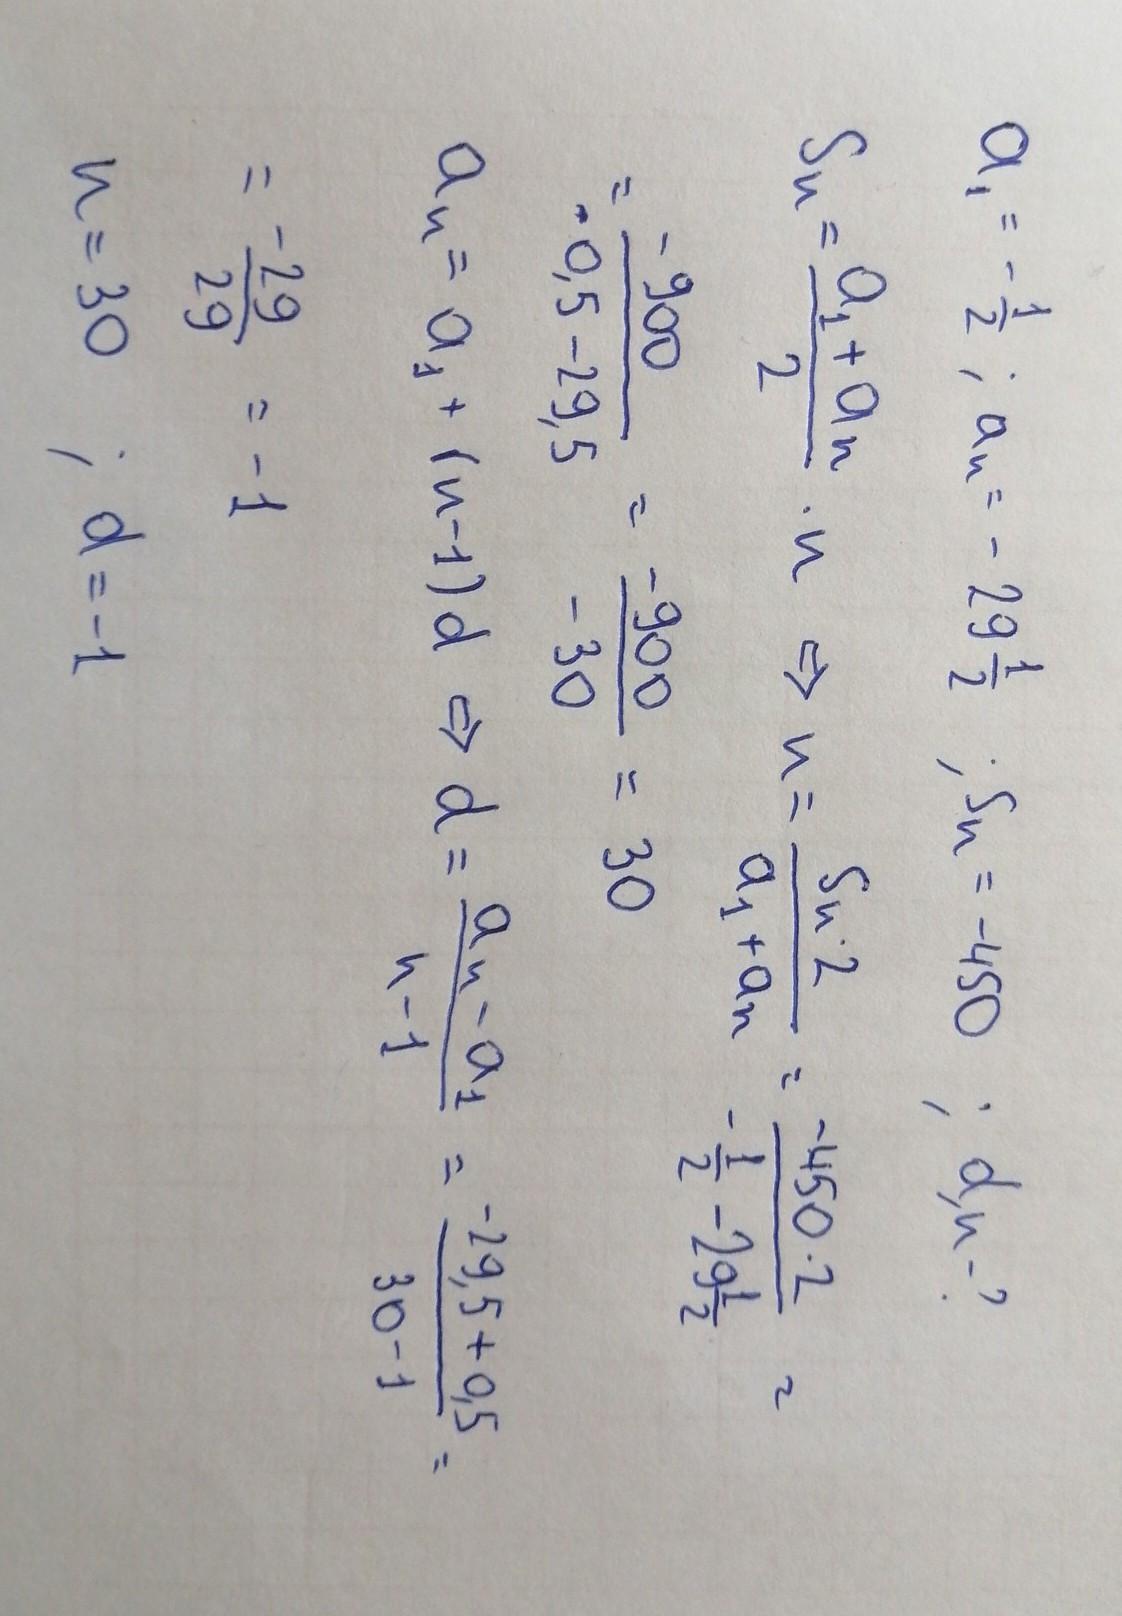 a₁ = -1/2 ; aₙ = -29 1/2 ; Sₙ = -450 ; d,n-?
Sₙ = (a₁ + aₙ)/2 · n ⇒ n = (Sₙ·2)/(a₁ + aₙ) = (-450·2)/(-1/2 - 29 1/2) =
= -900/(-0,5 - 29,5) = -900/-30 = 30
aₙ = a₁ + (n-1)d ⇒ d = (aₙ - a₁)/(n-1) = (-29,5 + 0,5)/(30-1) =
= -29/29 = -1
n = 30 ; d = -1